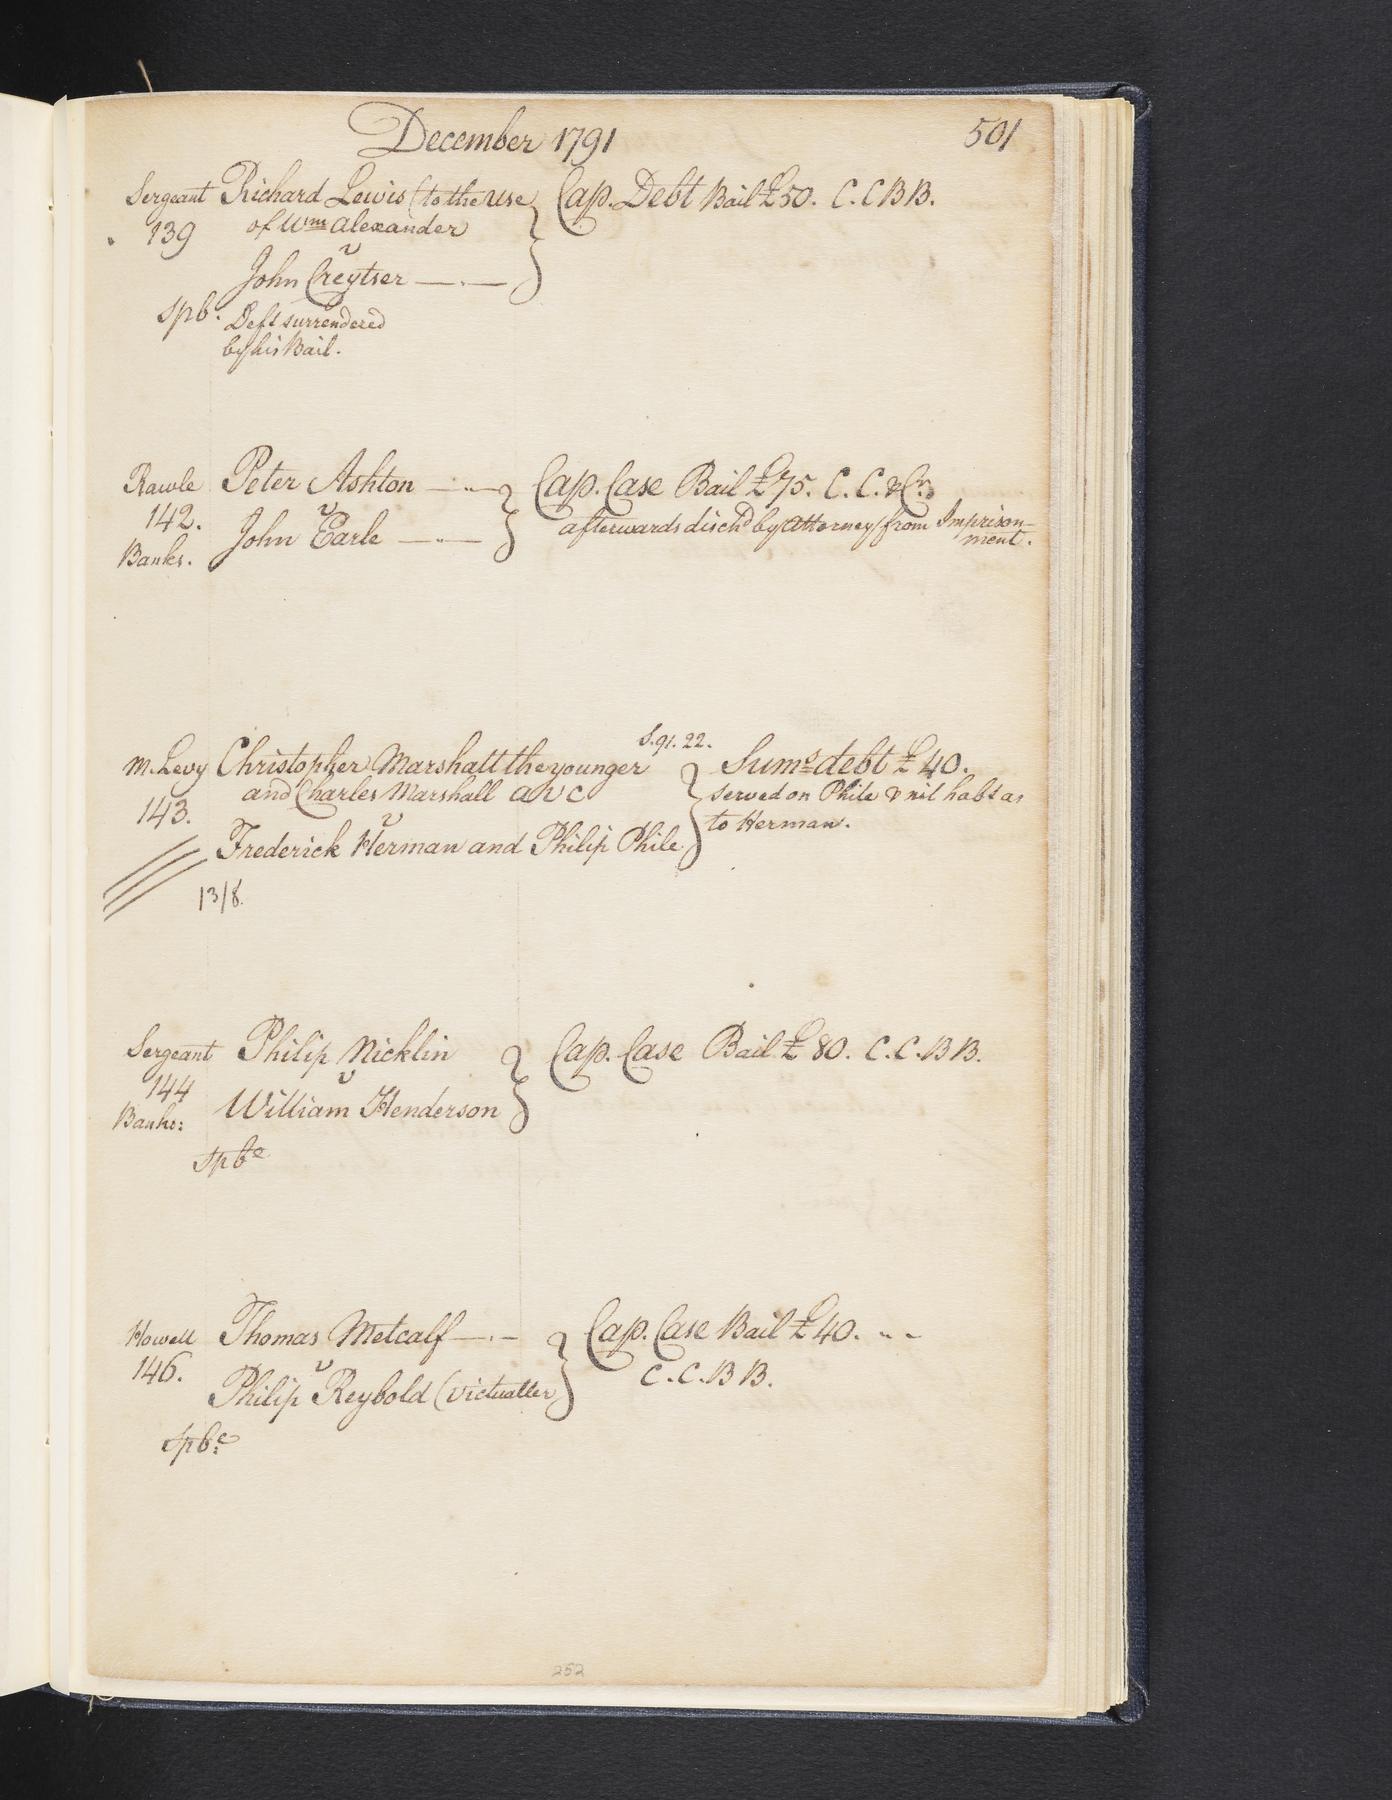 December 1791
501
Sergeant Richard Lewis (to the use Cap. Debt Bail £50. C.C B B.
139 of Wm Alexander
v
John Creytser
spb. Deft surrendered
by his Bail.
Rawle Peter Ashton Cap. Case Bail £75. C. C. &
142. v afterwards disch'd by Attorney from Imprison-
John Earle ment.
Banks.
S. 91. 22.
M. Levy Christopher Marshall the younger Sums debt £40.
and Charles Marshall served on Phile & nil habt as
143. v to Herman.
Frederick Herman and Philip Phile
13/8.
Sergeant Philip Nicklin Cap. Case Bail £80. C.C. B B.
144 v
Banks: William Henderson
spbe
Howell Thomas Metcalf Cap. Case Bail £40.
146. v C. C. B B.
Philip Reybold (victualler
spbe
252